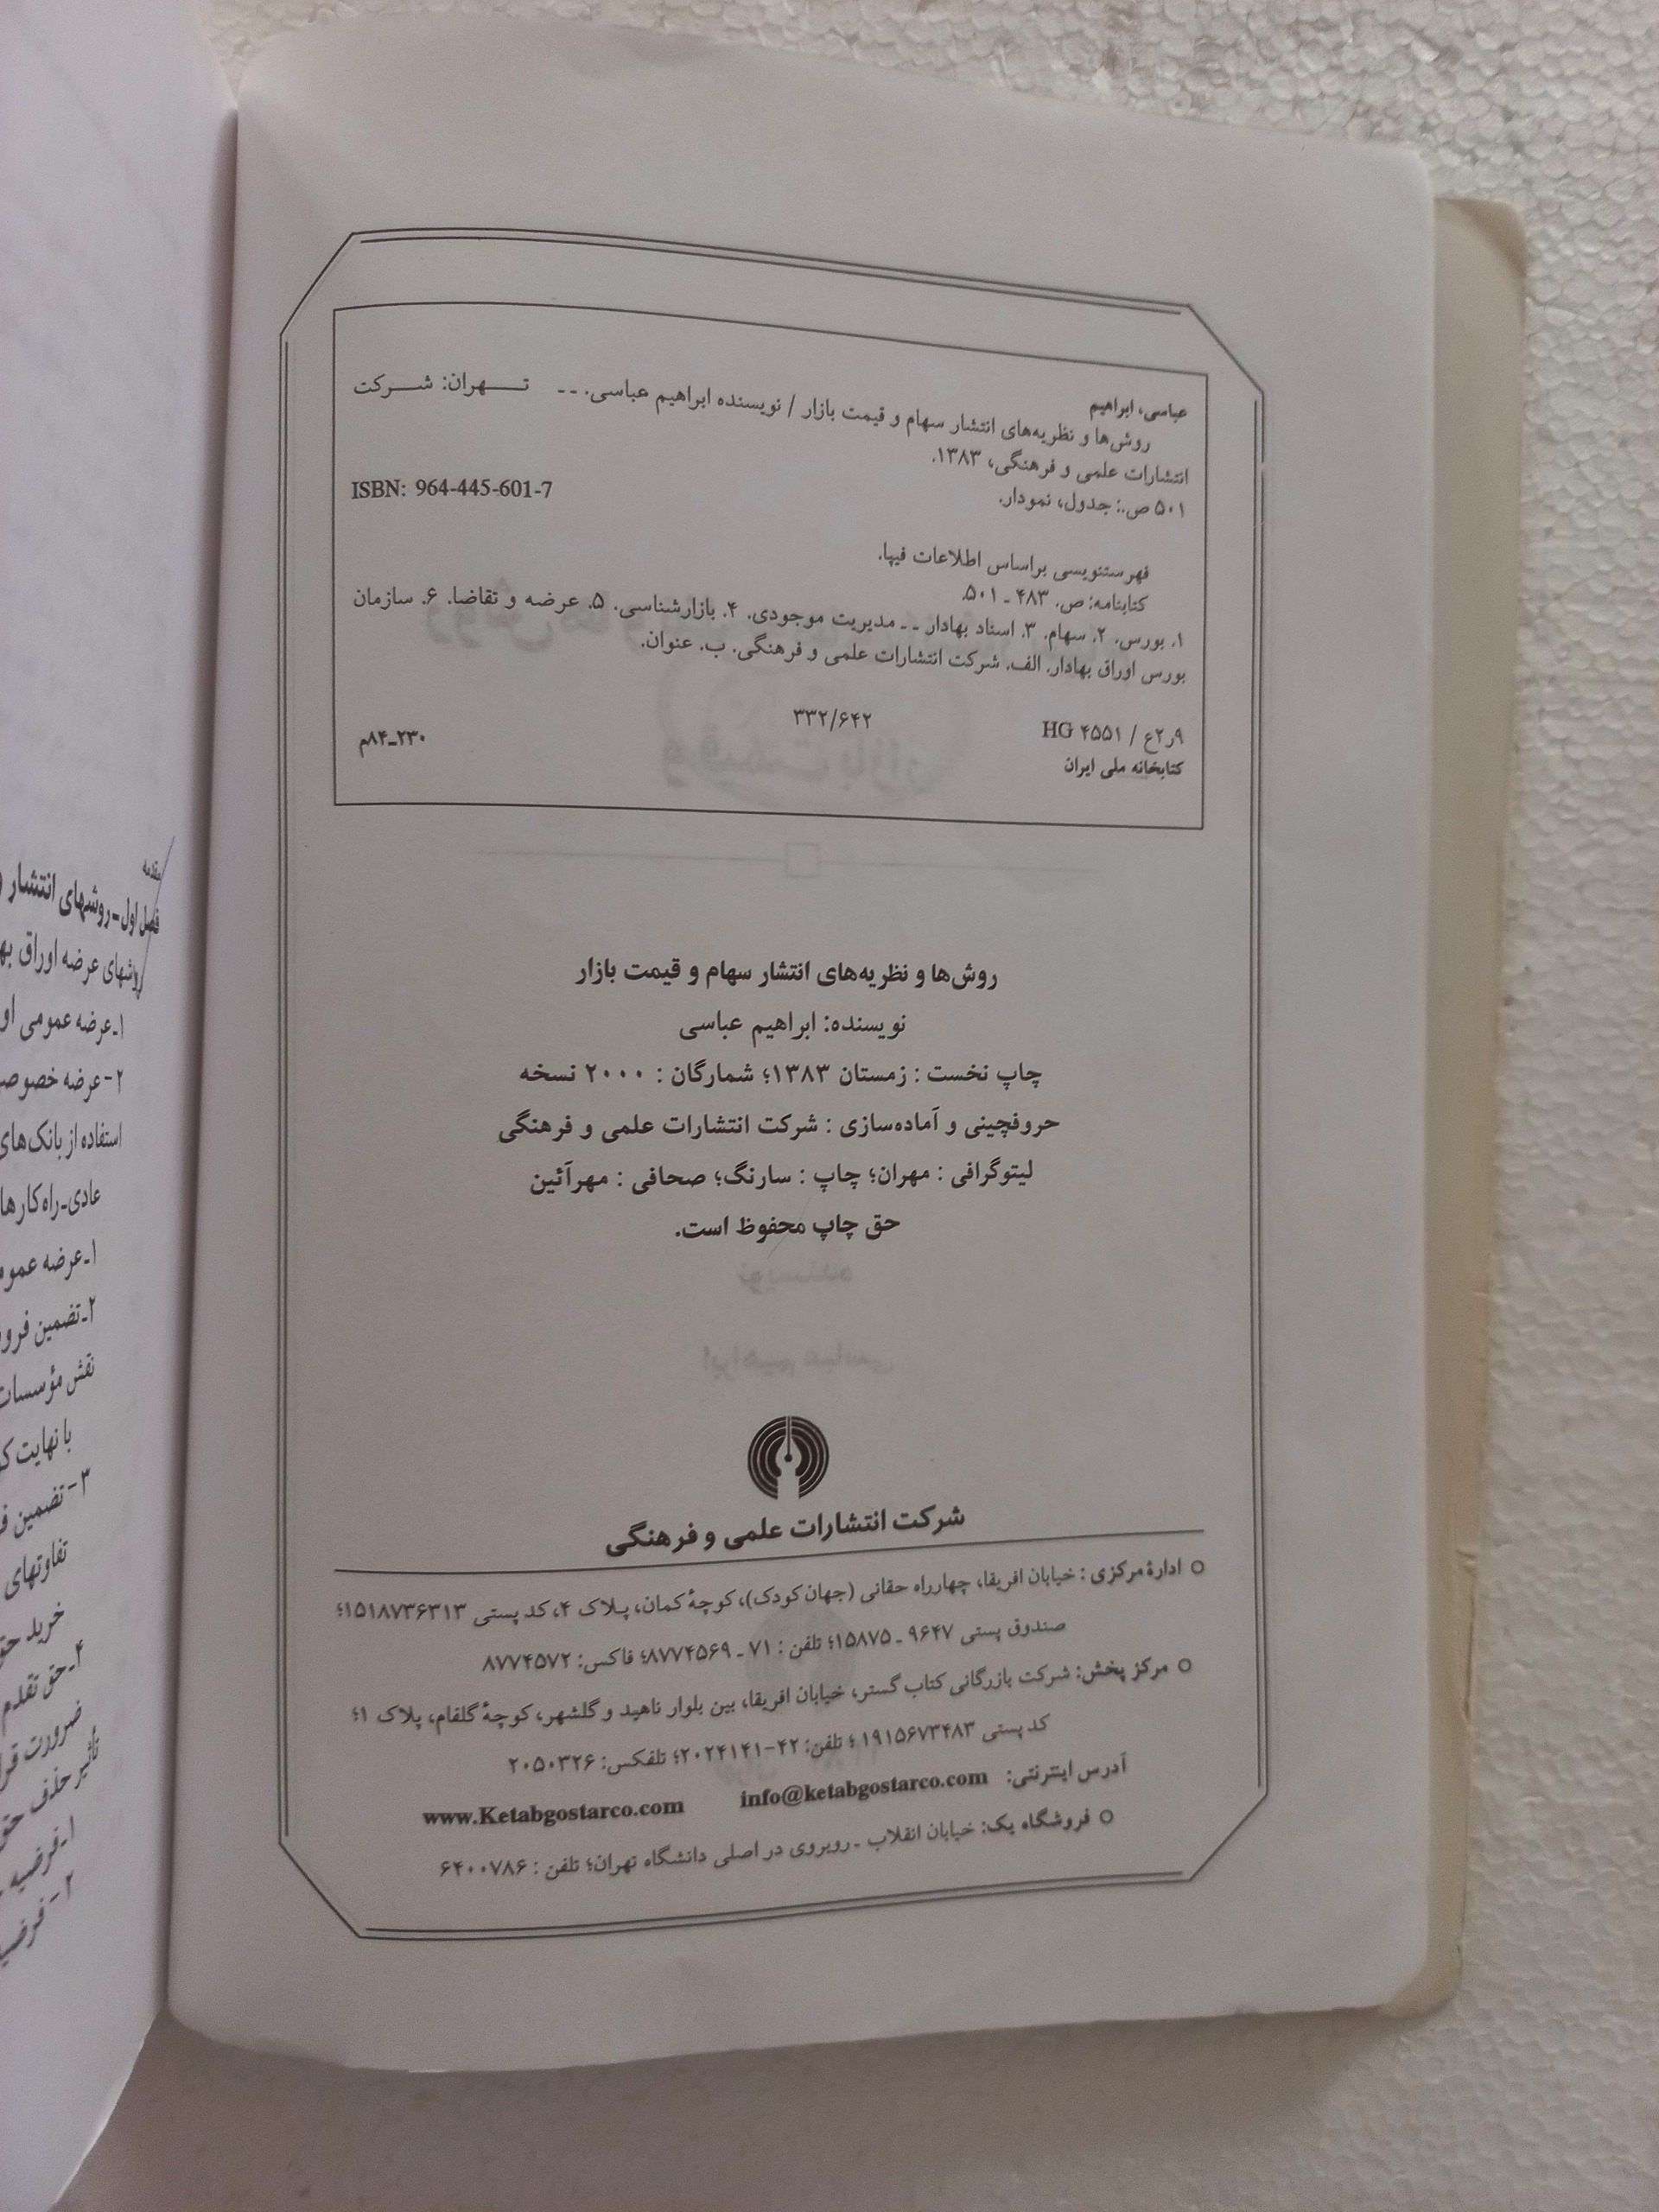 عباسی، ابراهیم
روش‌ها و نظریه‌های انتشار سهام و قیمت بازار / نویسنده ابراهیم عباسی. -- تـــهران: شـــرکت
انتشارات علمی و فرهنگی، ۱۳۸۳.
۵۰۱ ص.: جدول، نمودار.
ISBN: 964-445-601-7
فهرستنویسی براساس اطلاعات فیپا.
کتابنامه: ص. ۴۸۳ ـ ۵۰۱.
۱. بورس. ۲. سهام. ۳. اسناد بهادار -- مدیریت موجودی. ۴. بازارشناسی. ۵. عرضه و تقاضا. ۶. سازمان
بورس اوراق بهادار. الف. شرکت انتشارات علمی و فرهنگی. ب. عنوان.
۳۳۲/۶۴۲
۹ر۲ع / HG ۴۵۵۱
۲۳۰ـ۸۴م
کتابخانه ملی ایران
روش‌ها و نظریه‌های انتشار سهام و قیمت بازار
نویسنده: ابراهیم عباسی
چاپ نخست : زمستان ۱۳۸۳؛ شمارگان : ۲۰۰۰ نسخه
حروفچینی و آماده‌سازی : شرکت انتشارات علمی و فرهنگی
لیتوگرافی : مهران؛ چاپ : سارنگ؛ صحافی : مهرآئین
حق چاپ محفوظ است.
شرکت انتشارات علمی و فرهنگی
○ ادارهٔ مرکزی : خیابان افریقا، چهارراه حقانی (جهان کودک)، کوچهٔ کمان، پـلاک ۴، کد پستی ۱۵۱۸۷۳۶۳۱۳؛
صندوق پستی ۹۶۴۷ ـ ۱۵۸۷۵؛ تلفن : ۷۱ ـ ۸۷۷۴۵۶۹؛ فاکس: ۸۷۷۴۵۷۲
○ مرکز پخش: شرکت بازرگانی کتاب گستر، خیابان افریقا، بین بلوار ناهید و گلشهر، کوچهٔ گلفام، پلاک ۱؛
کد پستی ۱۹۱۵۶۷۳۴۸۳ ؛ تلفن: ۴۲-۲۰۲۴۱۴۱؛ تلفکس: ۲۰۵۰۳۲۶
آدرس اینترنتی: info@ketabgostarco.com www.Ketabgostarco.com
○ فروشگاه یک: خیابان انقلاب ـ روبروی در اصلی دانشگاه تهران؛ تلفن : ۶۴۰۰۷۸۶
مقدمه
فصل اول ـ روشهای انتشار
روشهای عرضه اوراق
۱ـ عرضه عمومی
۲- عرضه
استفاده از بانک‌های
عادی-راه‌کارها
۱ـ عرضه
۲ـ تضمین
نقش مؤسسات
با نهایت
۳- تضمین
تفاوتهای
خرید
۴ـ حق تقدم
ضرورت
تأثیر حذف
۱ـ فرضیه
۲-